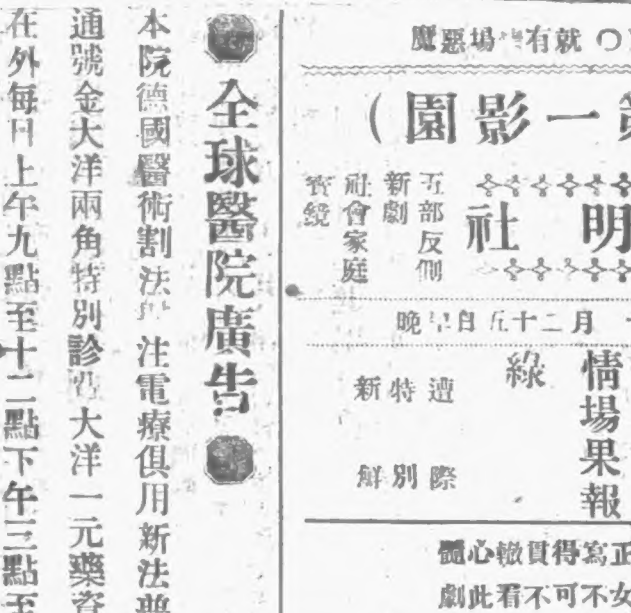 魔惡場 有就
園影一
社明
五部反側
新劇
社會家庭
晚早日五十二月
情場果報
綠
遭際
特別
新鮮
髓心徹貫得寫正
劇此看不可不女
全球醫院廣告
本院德國醫術割法 注電療俱用新法普
通號金大洋兩角特別診 大洋一元藥資
在外每日上午九點至十二點下午三點至